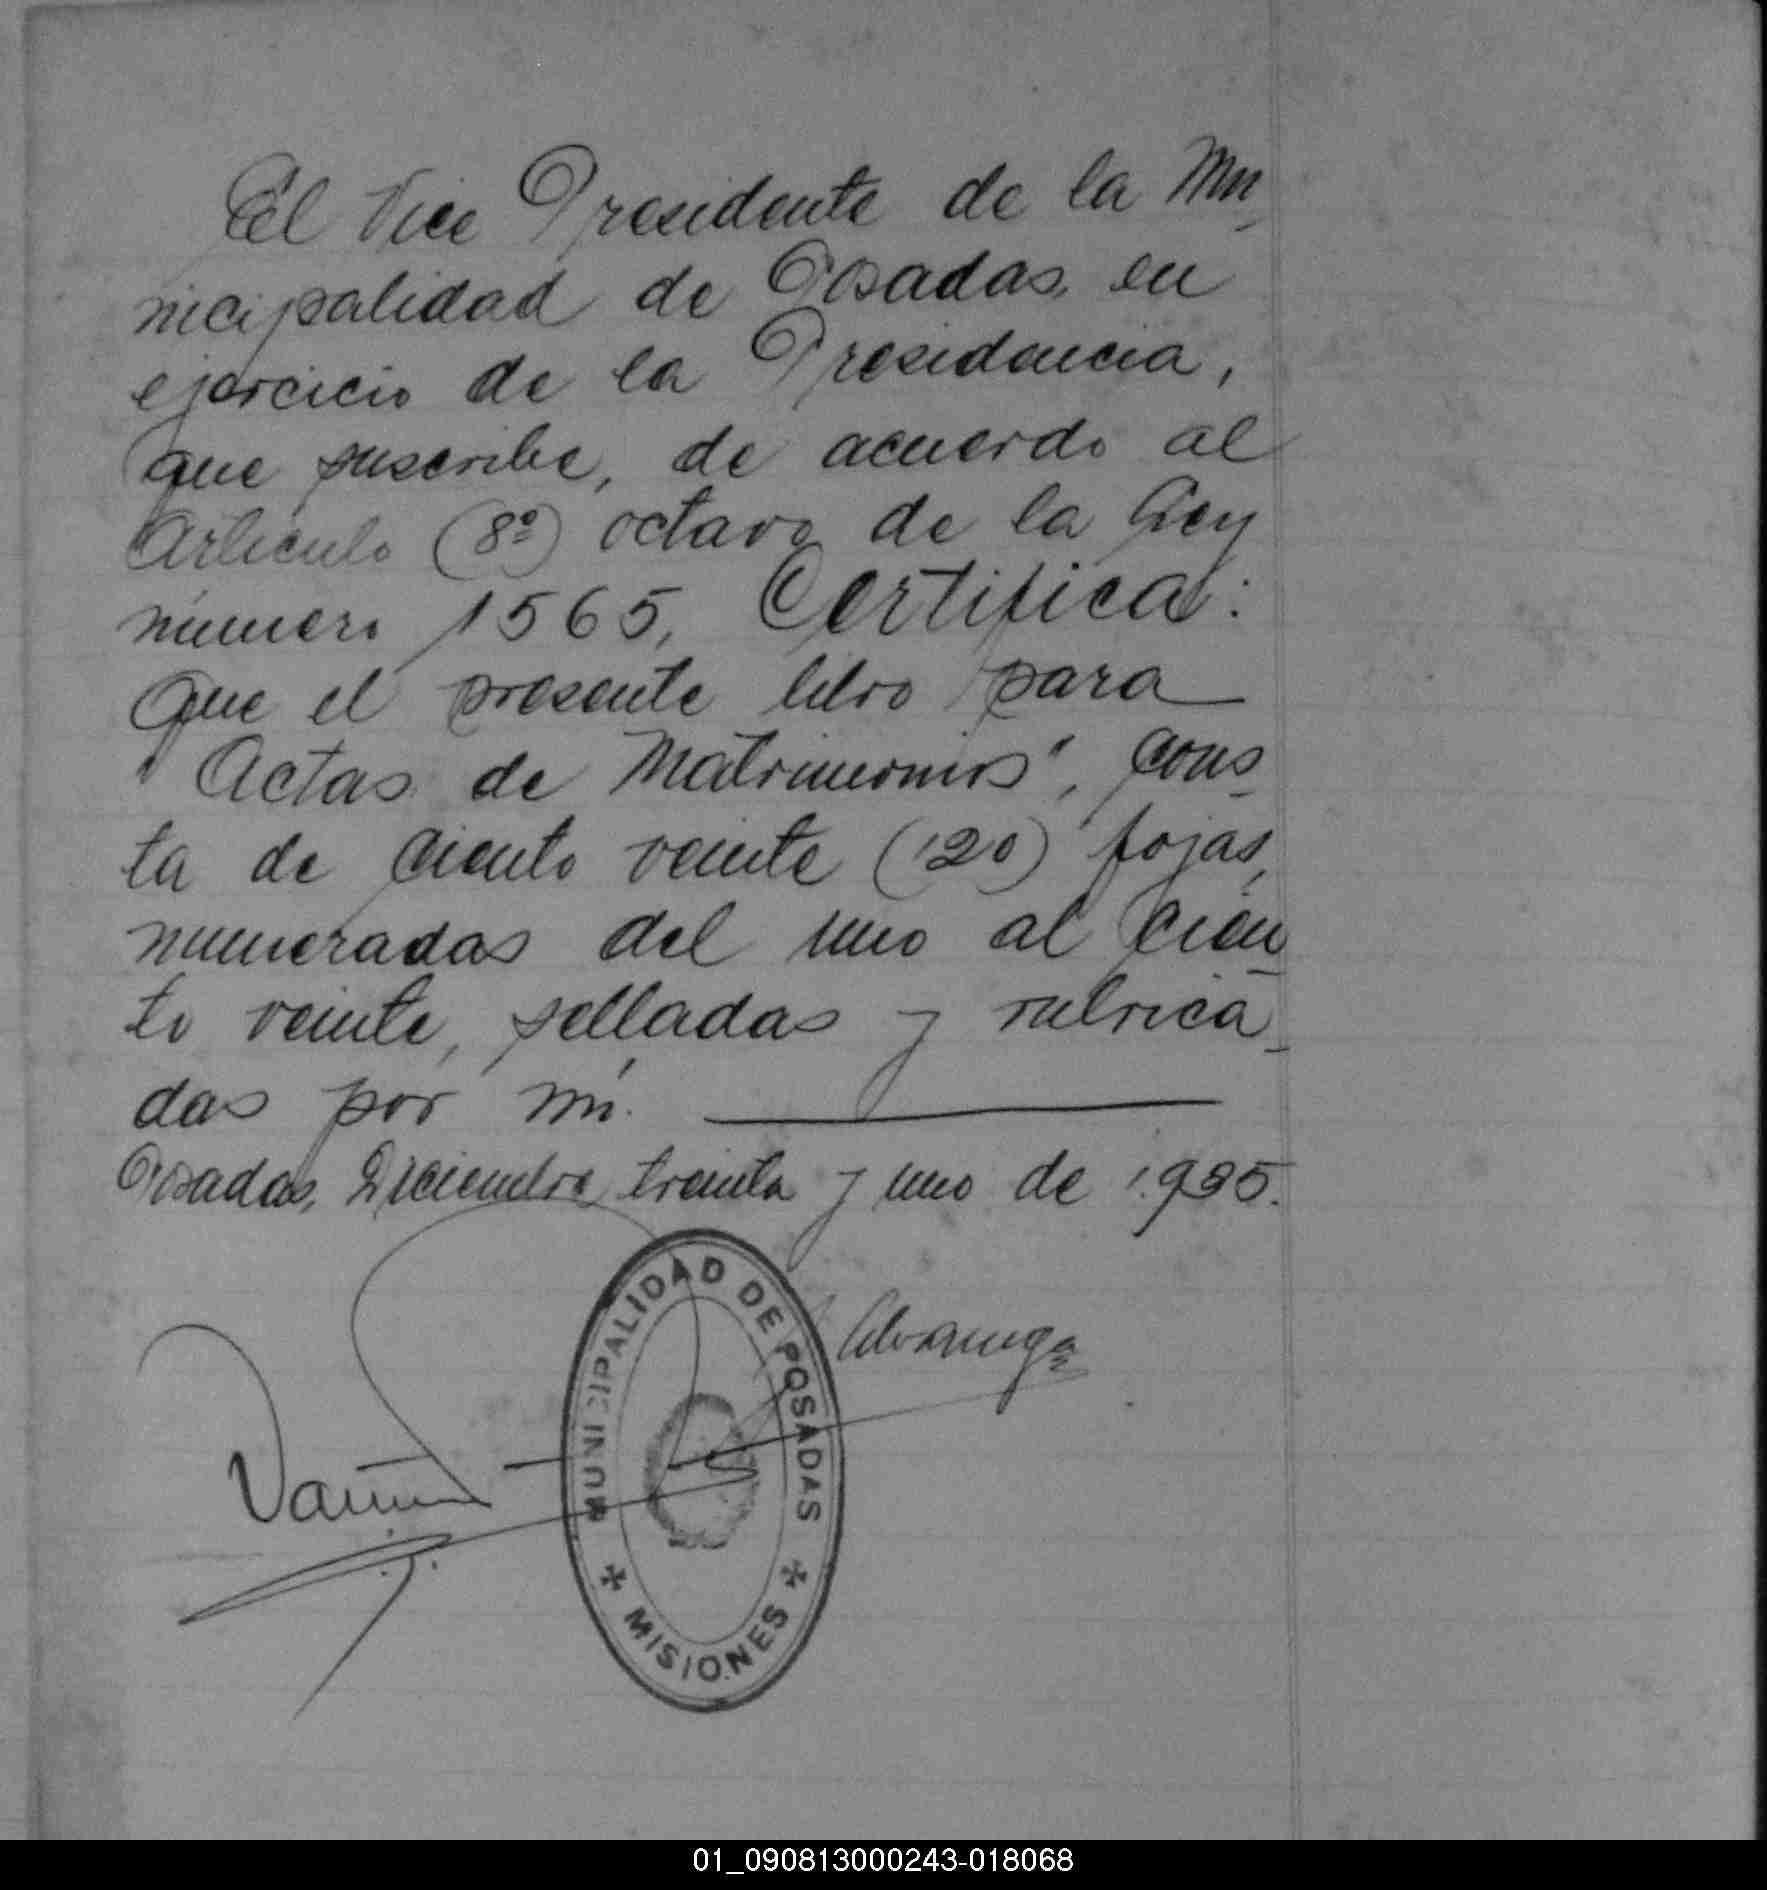 El Vice Presidente de la Mu-
nicipalidad de Posadas, en
ejercicio de la Presidencia,
que suscribe, de acuerdo al
Artículo (8º) octavo de la Ley
número 1565, Certifica:
Que el presente libro para
"Actas de Matrimonios", cons-
ta de ciento veinte (120) fojas,
numeradas del uno al cien-
to veinte, selladas y rubrica-
das por mí.
Posadas, Diciembre treinta y uno de 1935.
MUNICIPALIDAD DE POSADAS
MISIONES
01_090813000243-018068